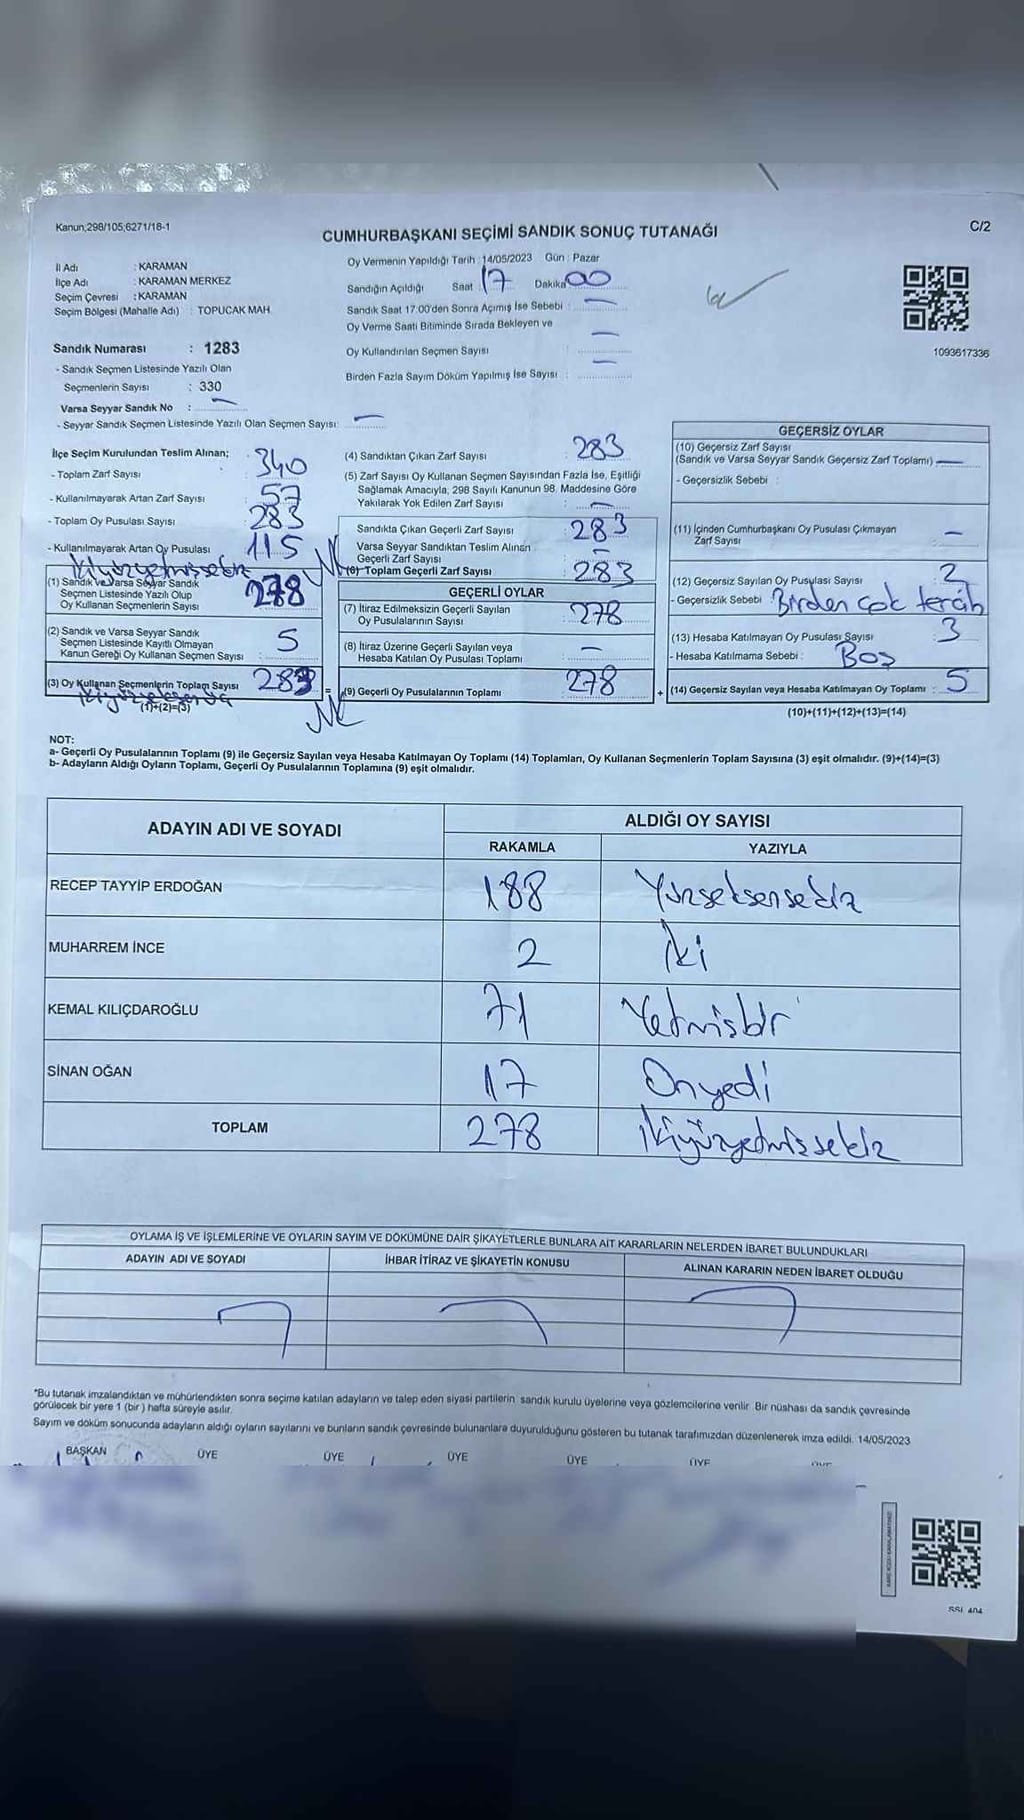 Kanun,298/105,6271/18-1
C/2
CUMHURBAŞKANI SEÇİMİ SANDIK SONUÇ TUTANAĞI
İl Adı : KARAMAN
İlçe Adı : KARAMAN MERKEZ
Seçim Çevresi : KARAMAN
Seçim Bölgesi (Mahalle Adı) : TOPUCAK MAH.
Sandık Numarası : 1283
- Sandık Seçmen Listesinde Yazılı Olan
Seçmenlerin Sayısı : 330
Varsa Seyyar Sandık No : —
- Seyyar Sandık Seçmen Listesinde Yazılı Olan Seçmen Sayısı: —
Oy Vermenin Yapıldığı Tarih : 14/05/2023 Gün : Pazar
Sandığın Açıldığı Saat : 17 Dakika 00
Sandık Saat 17:00'den Sonra Açımış İse Sebebi : —
Oy Verme Saati Bitiminde Sırada Bekleyen ve
Oy Kullandırılan Seçmen Sayısı —
Birden Fazla Sayım Döküm Yapılmış İse Sayısı : —
1093617336
İlçe Seçim Kurulundan Teslim Alınan;
- Toplam Zarf Sayısı : 340
- Kullanılmayarak Artan Zarf Sayısı : 57
- Toplam Oy Pusulası Sayısı : 283
- Kullanılmayarak Artan Oy Pusulası : 115
ikiyüzyetmişsekiz
(1) Sandık ve Varsa Seyyar Sandık
Seçmen Listesinde Yazılı Olup
Oy Kullanan Seçmenlerin Sayısı : 278
(2) Sandık ve Varsa Seyyar Sandık
Seçmen Listesinde Kayıtlı Olmayan
Kanun Gereği Oy Kullanan Seçmen Sayısı : 5
(3) Oy Kullanan Seçmenlerin Toplam Sayısı : 283
(1)+(2)=(3)
(4) Sandıktan Çıkan Zarf Sayısı : 283
(5) Zarf Sayısı Oy Kullanan Seçmen Sayısından Fazla İse, Eşitliği
Sağlamak Amacıyla, 298 Sayılı Kanunun 98. Maddesine Göre
Yakılarak Yok Edilen Zarf Sayısı : —
Sandıkta Çıkan Geçerli Zarf Sayısı : 283
Varsa Seyyar Sandıktan Teslim Alınan
Geçerli Zarf Sayısı : —
(6) Toplam Geçerli Zarf Sayısı : 283
GEÇERLİ OYLAR
(7) İtiraz Edilmeksizin Geçerli Sayılan
Oy Pusulalarının Sayısı : 278
(8) İtiraz Üzerine Geçerli Sayılan veya
Hesaba Katılan Oy Pusulası Toplamı : —
= (9) Geçerli Oy Pusulalarının Toplamı : 278 +
GEÇERSİZ OYLAR
(10) Geçersiz Zarf Sayısı
(Sandık ve Varsa Seyyar Sandık Geçersiz Zarf Toplamı) —
- Geçersizlik Sebebi :
(11) İçinden Cumhurbaşkanı Oy Pusulası Çıkmayan
Zarf Sayısı : —
(12) Geçersiz Sayılan Oy Pusulası Sayısı : 2
- Geçersizlik Sebebi : Birden çok tercih
(13) Hesaba Katılmayan Oy Pusulası Sayısı : 3
- Hesaba Katılmama Sebebi : Boş
(14) Geçersiz Sayılan veya Hesaba Katılmayan Oy Toplamı : 5
(10)+(11)+(12)+(13)=(14)
NOT:
a- Geçerli Oy Pusulalarının Toplamı (9) ile Geçersiz Sayılan veya Hesaba Katılmayan Oy Toplamı (14) Toplamları, Oy Kullanan Seçmenlerin Toplam Sayısına (3) eşit olmalıdır. (9)+(14)=(3)
b- Adayların Aldığı Oyların Toplamı, Geçerli Oy Pusulalarının Toplamına (9) eşit olmalıdır.
ADAYIN ADI VE SOYADI ALDIĞI OY SAYISI
RAKAMLA YAZIYLA
RECEP TAYYİP ERDOĞAN 188 Yüzseksensekiz
MUHARREM İNCE 2 İki
KEMAL KILIÇDAROĞLU 71 Yetmişbir
SİNAN OĞAN 17 Onyedi
TOPLAM 278 ikiyüzyetmişsekiz
OYLAMA İŞ VE İŞLEMLERİNE VE OYLARIN SAYIM VE DÖKÜMÜNE DAİR ŞİKAYETLERLE BUNLARA AİT KARARLARIN NELERDEN İBARET BULUNDUKLARI
ADAYIN ADI VE SOYADI İHBAR İTİRAZ VE ŞİKAYETİN KONUSU ALINAN KARARIN NEDEN İBARET OLDUĞU
*Bu tutanak imzalandıktan ve mühürlendikten sonra seçime katılan adayların ve talep eden siyasi partilerin sandık kurulu üyelerine veya gözlemcilerine verilir. Bir nüshası da sandık çevresinde
görülecek bir yere 1 (bir) hafta süreyle asılır.
Sayım ve döküm sonucunda adayların aldığı oyların sayılarını ve bunların sandık çevresinde bulunanlara duyurulduğunu gösteren bu tutanak tarafımızdan düzenlenerek imza edildi. 14/05/2023
BAŞKAN ÜYE ÜYE ÜYE ÜYE ÜYE ÜYE